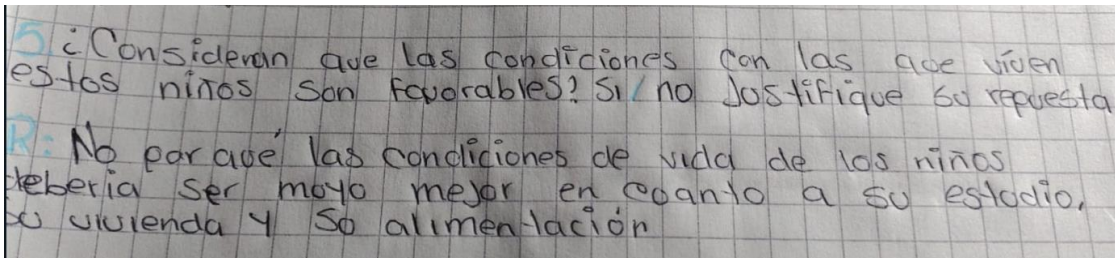 5 ¿Consideran que las condiciones con las que viven
estos niños son favorables? Si/no Justifique su repuesta
R: No por qué las condiciones de vida de los niños
deberia ser muyo mejor en cuanto a su estudio,
su vivienda y su alimentación